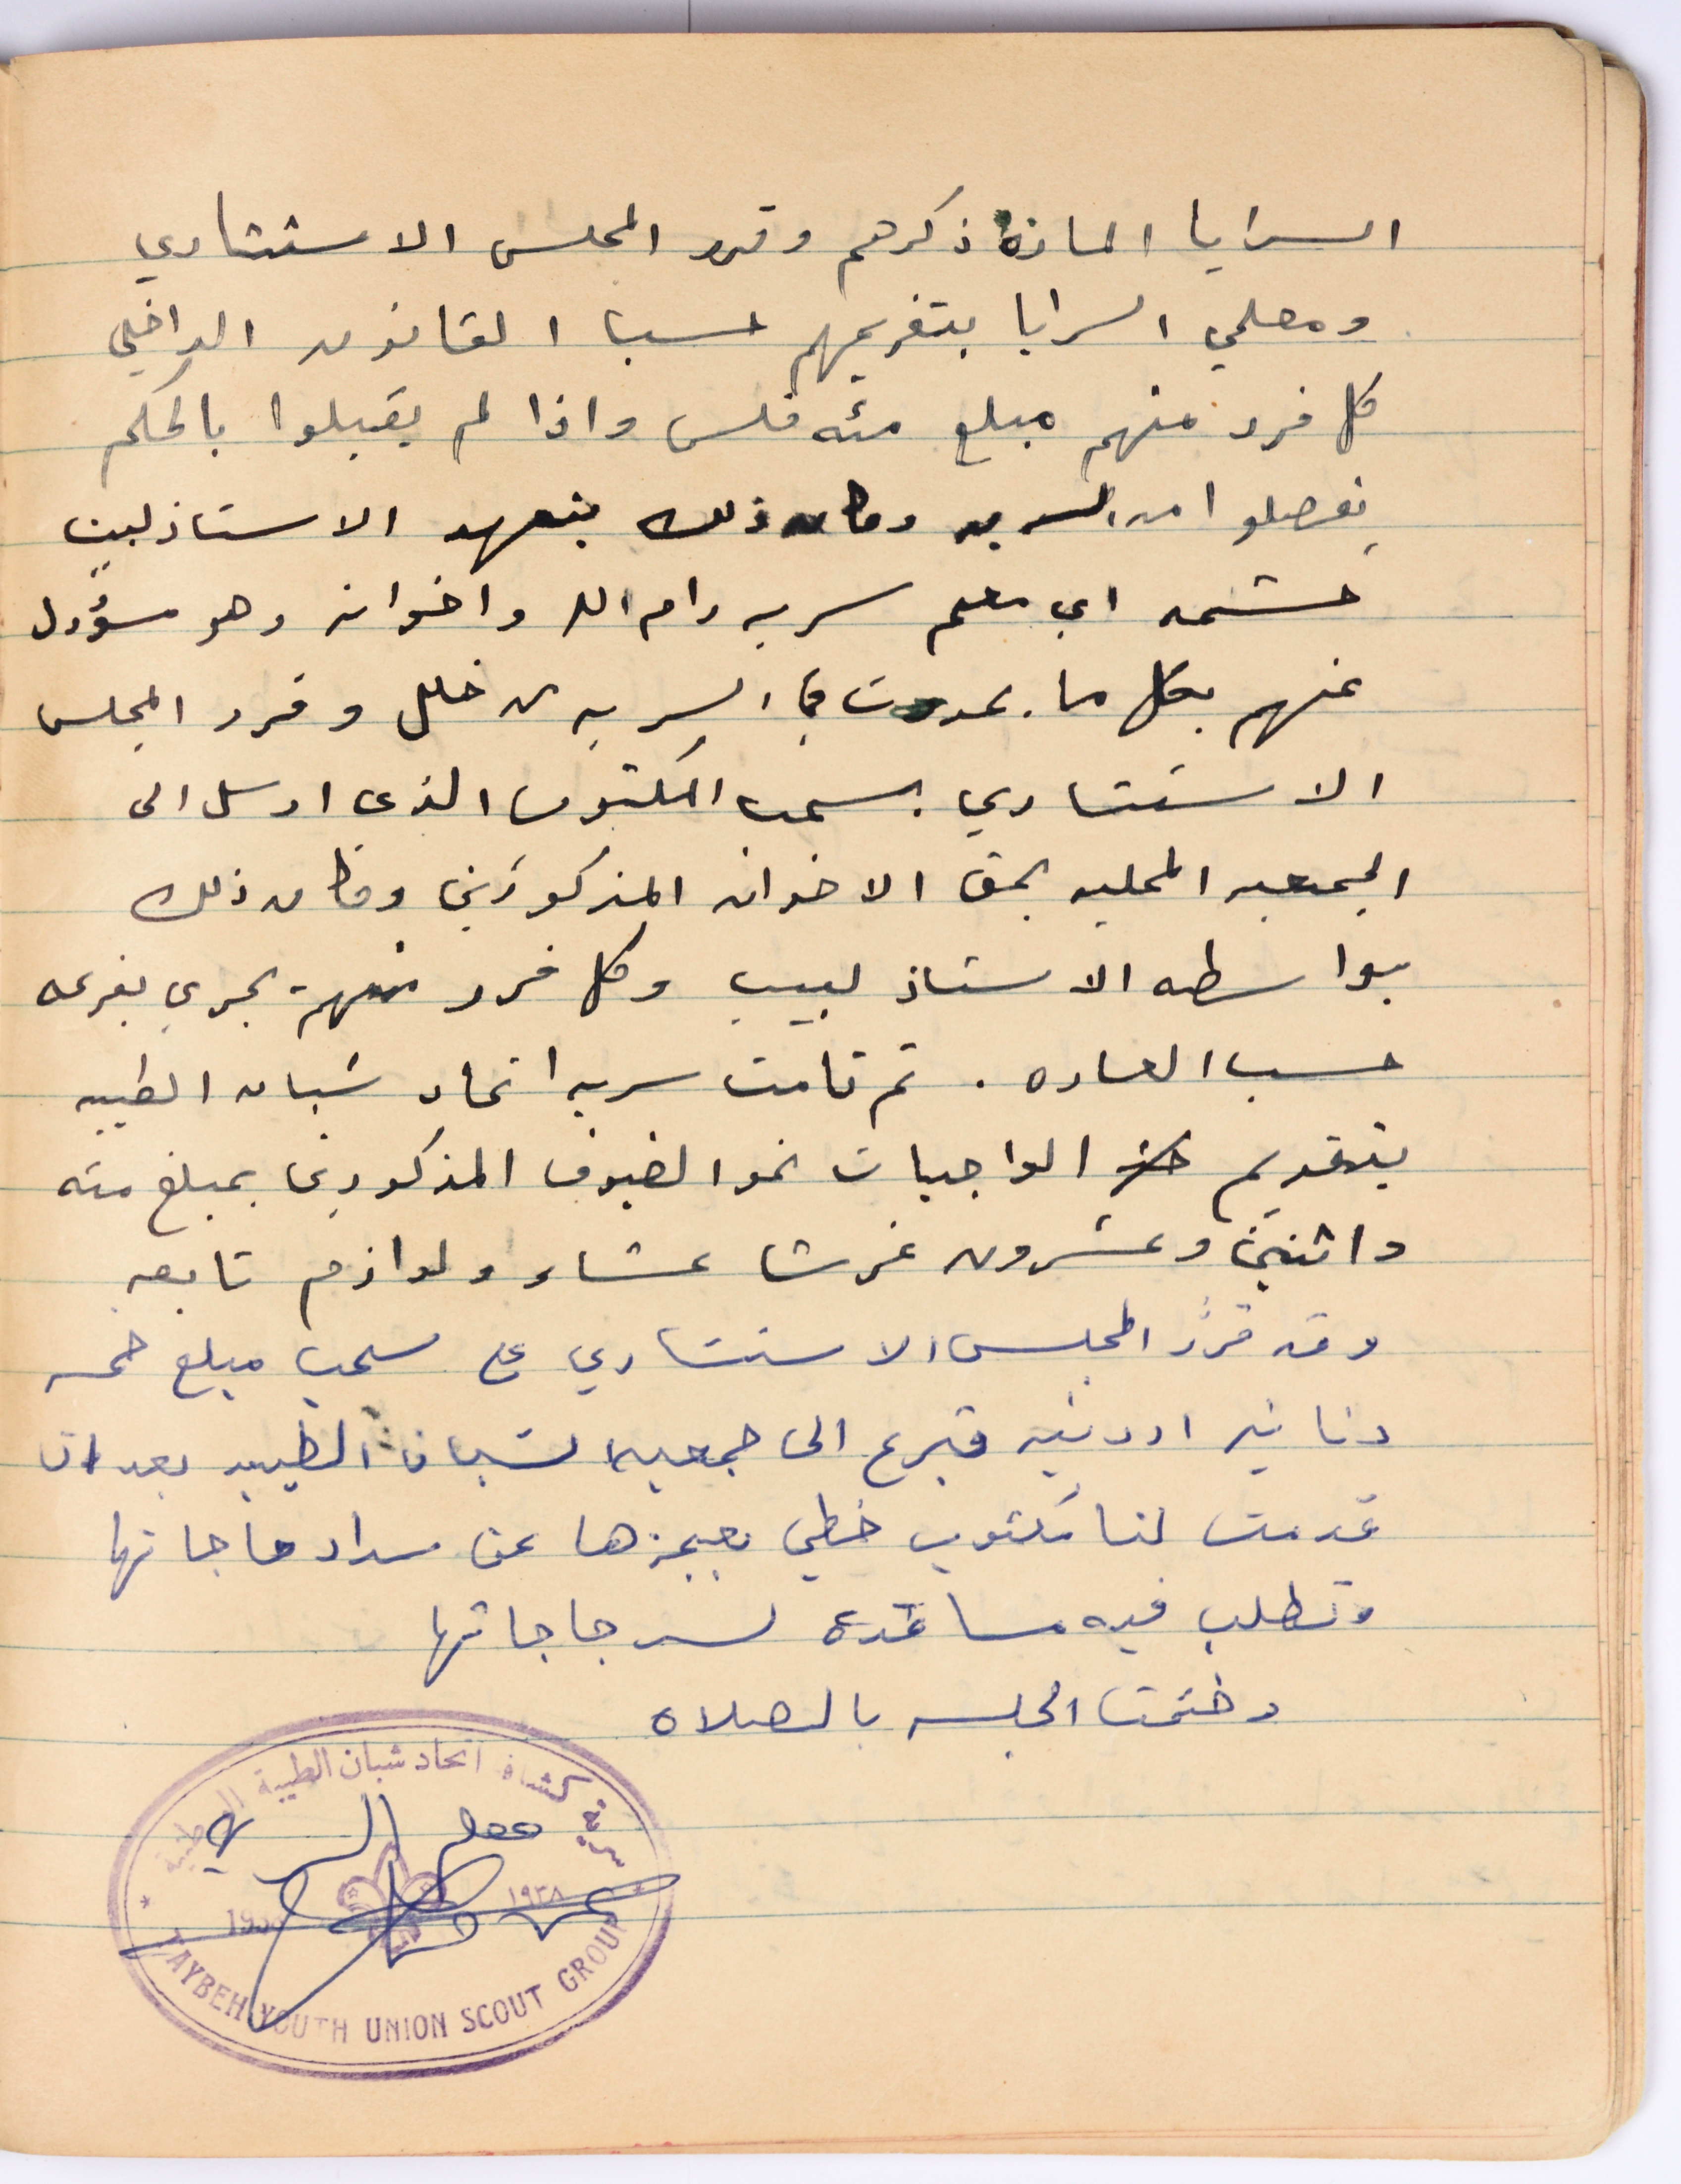 السرايا المارة ذكرهم وقرر المجلس الاستشاري
ومعلمي السرايا بتغريمهم حسب القانون الداخلي
كل فرد منهم مبلغ مئه فلس واذا لم يقبلوا بالحكم
يفصلوا من السريه وكان ذلك بتعهد الاستاذ لبيب
حشمه اي معلم سريه رام الله واخوانه وهو مسؤول
عنهم بكل ما يحدث في السريه من خلل وقرر المجلس
الاستشاري بسحب المكتوب الذي ارسل الى
الجمعيه المحليه بحق الاخوان المذكورين وكان ذلك
بواسطه الاستاذ لبيب وكل فرد منهم يجري بغرمه
حسب العاده . ثم قامت سريه اتحاد شبان الطيبه
بتقديم الواجبات نحو الضيوف المذكورين بمبلغ مئه
واثنين وعشرون غرشا عشاء ولوازم تابعه
وقد قرر المجلس الاستشاري على سحب مبلغ خمسه
دنانير اردنيه تبرع الى جمعيه لشبان الطيبه بعد ان
قدمت لنا مكتوب خطي بعجزها عن سداد حاجاتها
وتطلب فيه مساعدة لسد حاجاتها
وختمت الجلسه بالصلاه
سرية كشافة اتحاد شبان الطيبة الوطنية
معلم السريه
١٩٣٨
TAYBEH YOUTH UNION SCOUT GROUP